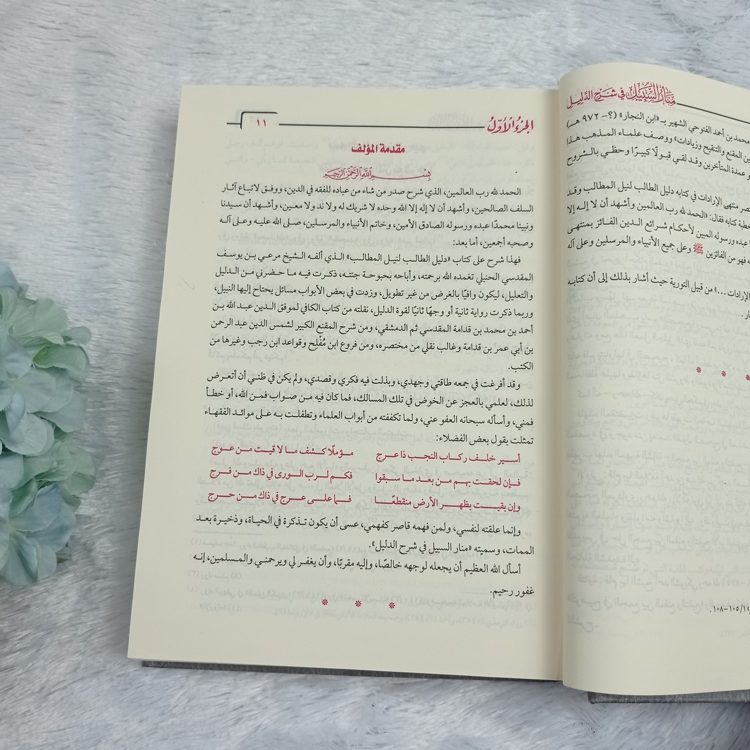 منار السبيل في شرح الدليل
محمد بن أحمد الفتوحي الشهير بـ «ابن النجار» (؟ - ٩٧٢ هـ)
بين المقنع والتنقيح وزيادات» ووصف علماء المذهب هذا
عمدة المتأخرين وقد لقي قبولًا كبيرًا وحظي بالشروح
منتهى الإرادات في كتابه دليل الطالب لنيل المطالب وقد
خطبة كتابه فقال: «الحمد لله رب العالمين وأشهد أن لا إله إلا
عبده ورسوله المبين لأحكام شرائع الدين الفائز بمنتهى
فهو من الفائزين ﷺ وعلى جميع الأنبياء والمرسلين وعلى آله
الإرادات...» من قبيل التورية حيث أشار بذلك إلى أن كتابه
* * *
١٠٥-١٠٨.
الجزء الأول
١١
مقدمة المؤلف
بسم الله الرحمن الرحيم
الحمد لله رب العالمين، الذي شرح صدر من شاء من عباده للفقه في الدين، ووفق لاتباع آثار
السلف الصالحين، وأشهد أن لا إله إلا الله وحده لا شريك له ولا ند ولا معين، وأشهد أن سيدنا
ونبينا محمدًا عبده ورسوله الصادق الأمين، وخاتم الأنبياء والمرسلين، صلى الله عليه وعلى آله
وصحبه أجمعين، أما بعد:
فهذا شرح على كتاب «دليل الطالب لنيل المطالب» الذي ألفه الشيخ مرعي بن يوسف
المقدسي الحنبلي تغمده الله برحمته، وأباحه بحبوحة جنته، ذكرت فيه ما حضرني من الدليل
والتعليل، ليكون وافيًا بالغرض من غير تطويل، وزدت في بعض الأبواب مسائل يحتاج إليها النبيل،
وربما ذكرت رواية ثانية أو وجهًا ثانيًا لقوة الدليل، نقلته من كتاب الكافي لموفق الدين عبد الله بن
أحمد بن محمد بن قدامة المقدسي ثم الدمشقي، ومن شرح المقنع الكبير لشمس الدين عبد الرحمن
بن أبي عمر بن قدامة وغالب نقلي من مختصره، ومن فروع ابن مُفْلِح وقواعد ابن رجب وغيرها من
الكتب.
وقد أفرغت في جمعه طاقتي وجهدي، وبذلت فيه فكري وقصدي، ولم يكن في ظني أن أتعرض
لذلك، لعلمي بالعجز عن الخوض في تلك المسالك، فما كان فيه من صواب فمن الله، أو خطأ
فمني، وأسأله سبحانه العفو عني، ولما تكففته من أبواب العلماء وتطفلت به على موائد الفقهاء
تمثلت بقول بعض الفضلاء:
أسير خلف ركاب النجب ذا عرج مؤملًا كشف ما لاقيت من عوج
فإن لحقت بهم من بعد ما سبقوا فكم لرب الورى في ذاك من فرج
وإن بقيت بظهر الأرض منقطعًا فما على عرج في ذاك من حرج
وإنما علقته لنفسي، ولمن فهمه قاصر كفهمي، عسى أن يكون تذكرة في الحياة، وذخيرة بعد
الممات، وسميته «منار السبيل في شرح الدليل».
أسأل الله العظيم أن يجعله لوجهه خالصًا، وإليه مقربًا، وأن يغفر لي ويرحمني والمسلمين، إنه
غفور رحيم.
* * *